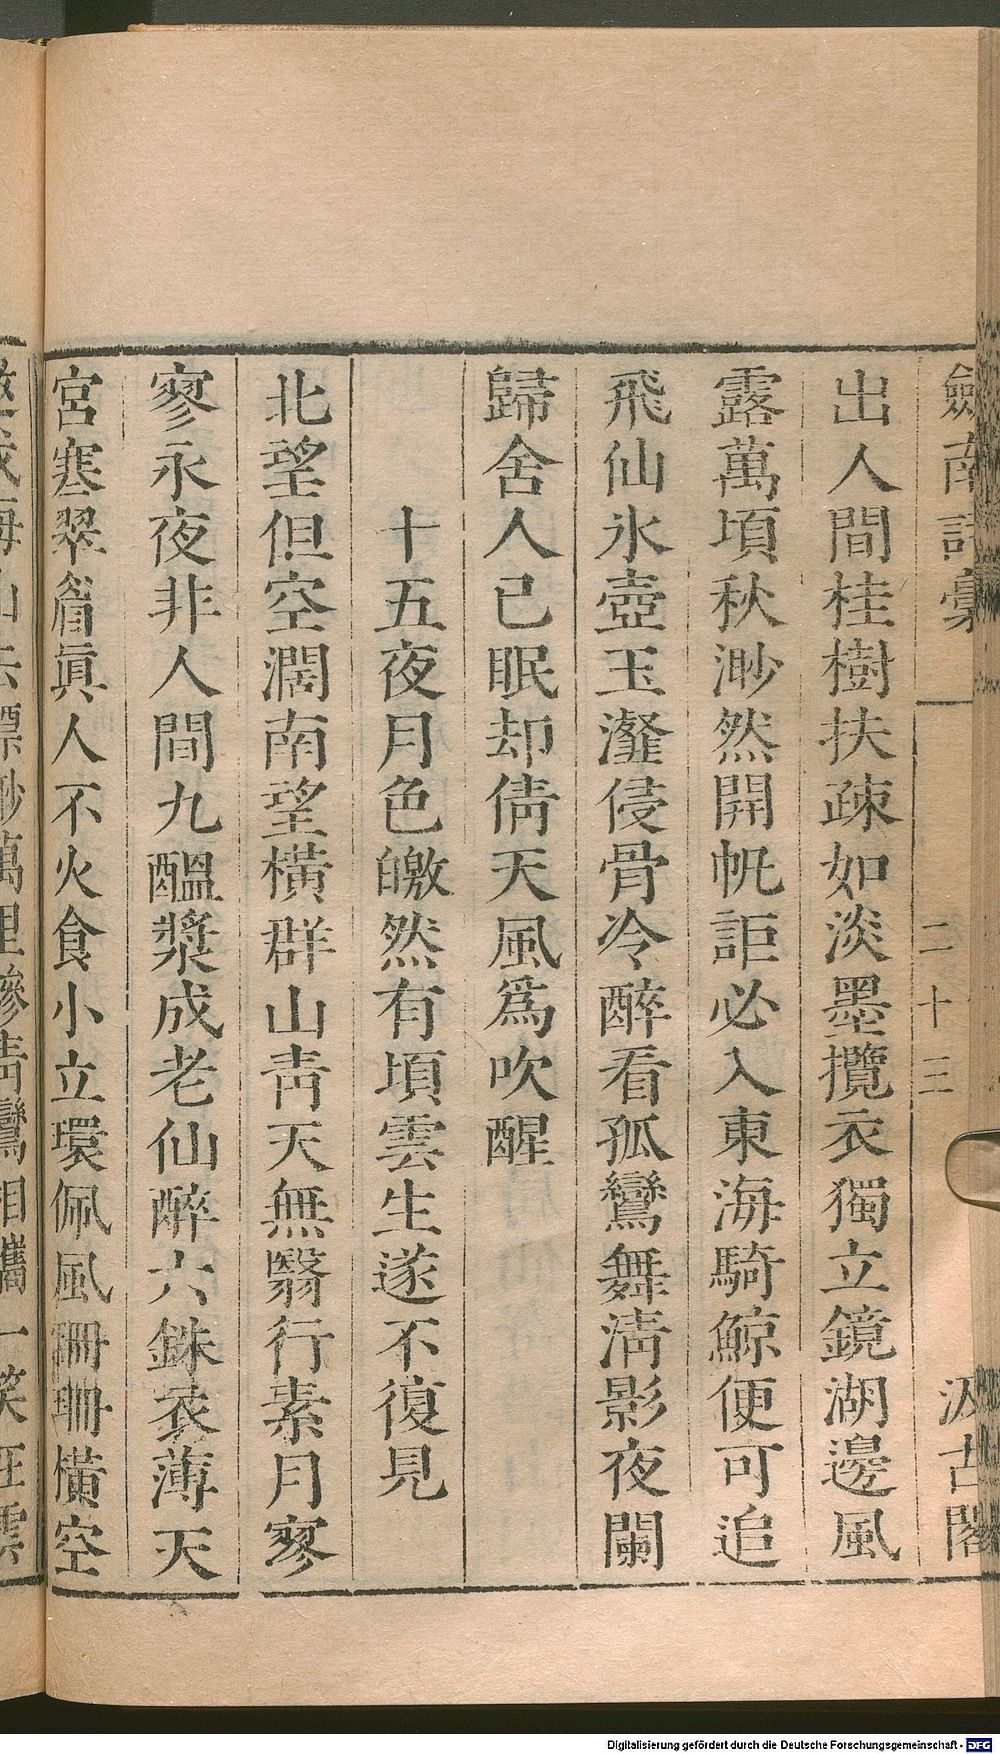 劍南詩稾 二十三 汲古閣
出人間桂樹扶疎如淡墨攬衣獨立鏡湖邊風
露萬頃秋渺然開帆詎必入東海騎鯨便可追
飛仙氷壺玉瀣侵骨冷醉看孤鸞舞淸影夜闌
歸舍人已眠却倩天風爲吹醒
十五夜月色皦然有頃雲生遂不復見
北望但空濶南望橫群山靑天無翳行素月寥
寥永夜非人間九醞漿成老仙醉六銖衣薄天
宮寒翠眉眞人不火食小立環佩風珊珊橫空
山去縹緲萬里
靑鸞相攜一笑
Digitalisierung gefördert durch die Deutsche Forschungsgemeinschaft - DFG